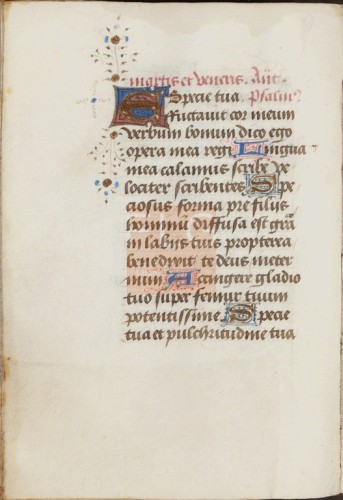 martis et veneris. Añt.
Specie tua. Psalm?
Eructauit cor meum
verbum bonum dico ego
opera mea regi Lingua
mea calamus scribe ve
lociter scribentes Spe
ciosus forma pre filijs
hominũ diffusa est grã
in labijs tuis propterea
benedixit te deus in eter
num Accingere gladio
tuo super femur tuum
potentissime. Specie
tua et pulchritudine tua.